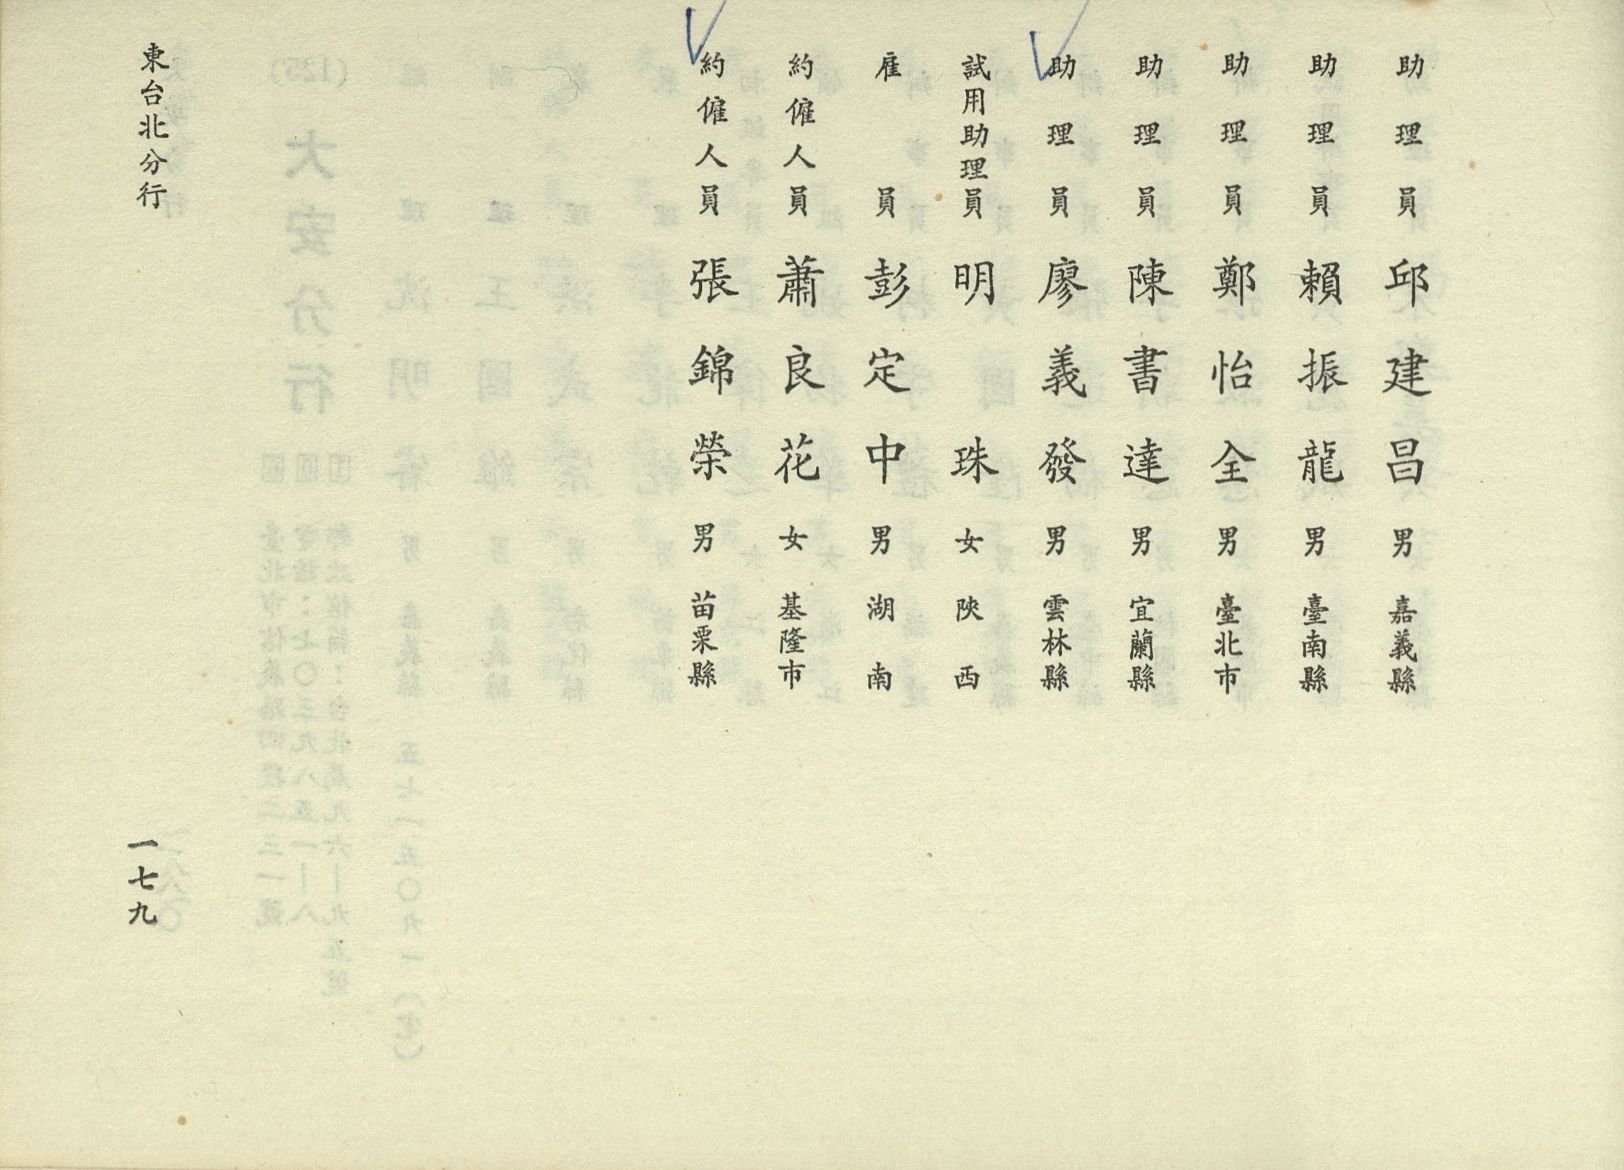 助理員 邱建昌 男 嘉義縣
助理員 賴振龍 男 臺南縣
助理員 鄭怡全 男 臺北市
助理員 陳書達 男 宜蘭縣
助理員 廖義發 男 雲林縣
試用助理員 明珠 女 陝西
雇員 彭定中 男 湖南
約僱人員 蕭良花 女 基隆市
約僱人員 張錦榮 男 苗栗縣
東台北分行
一七九